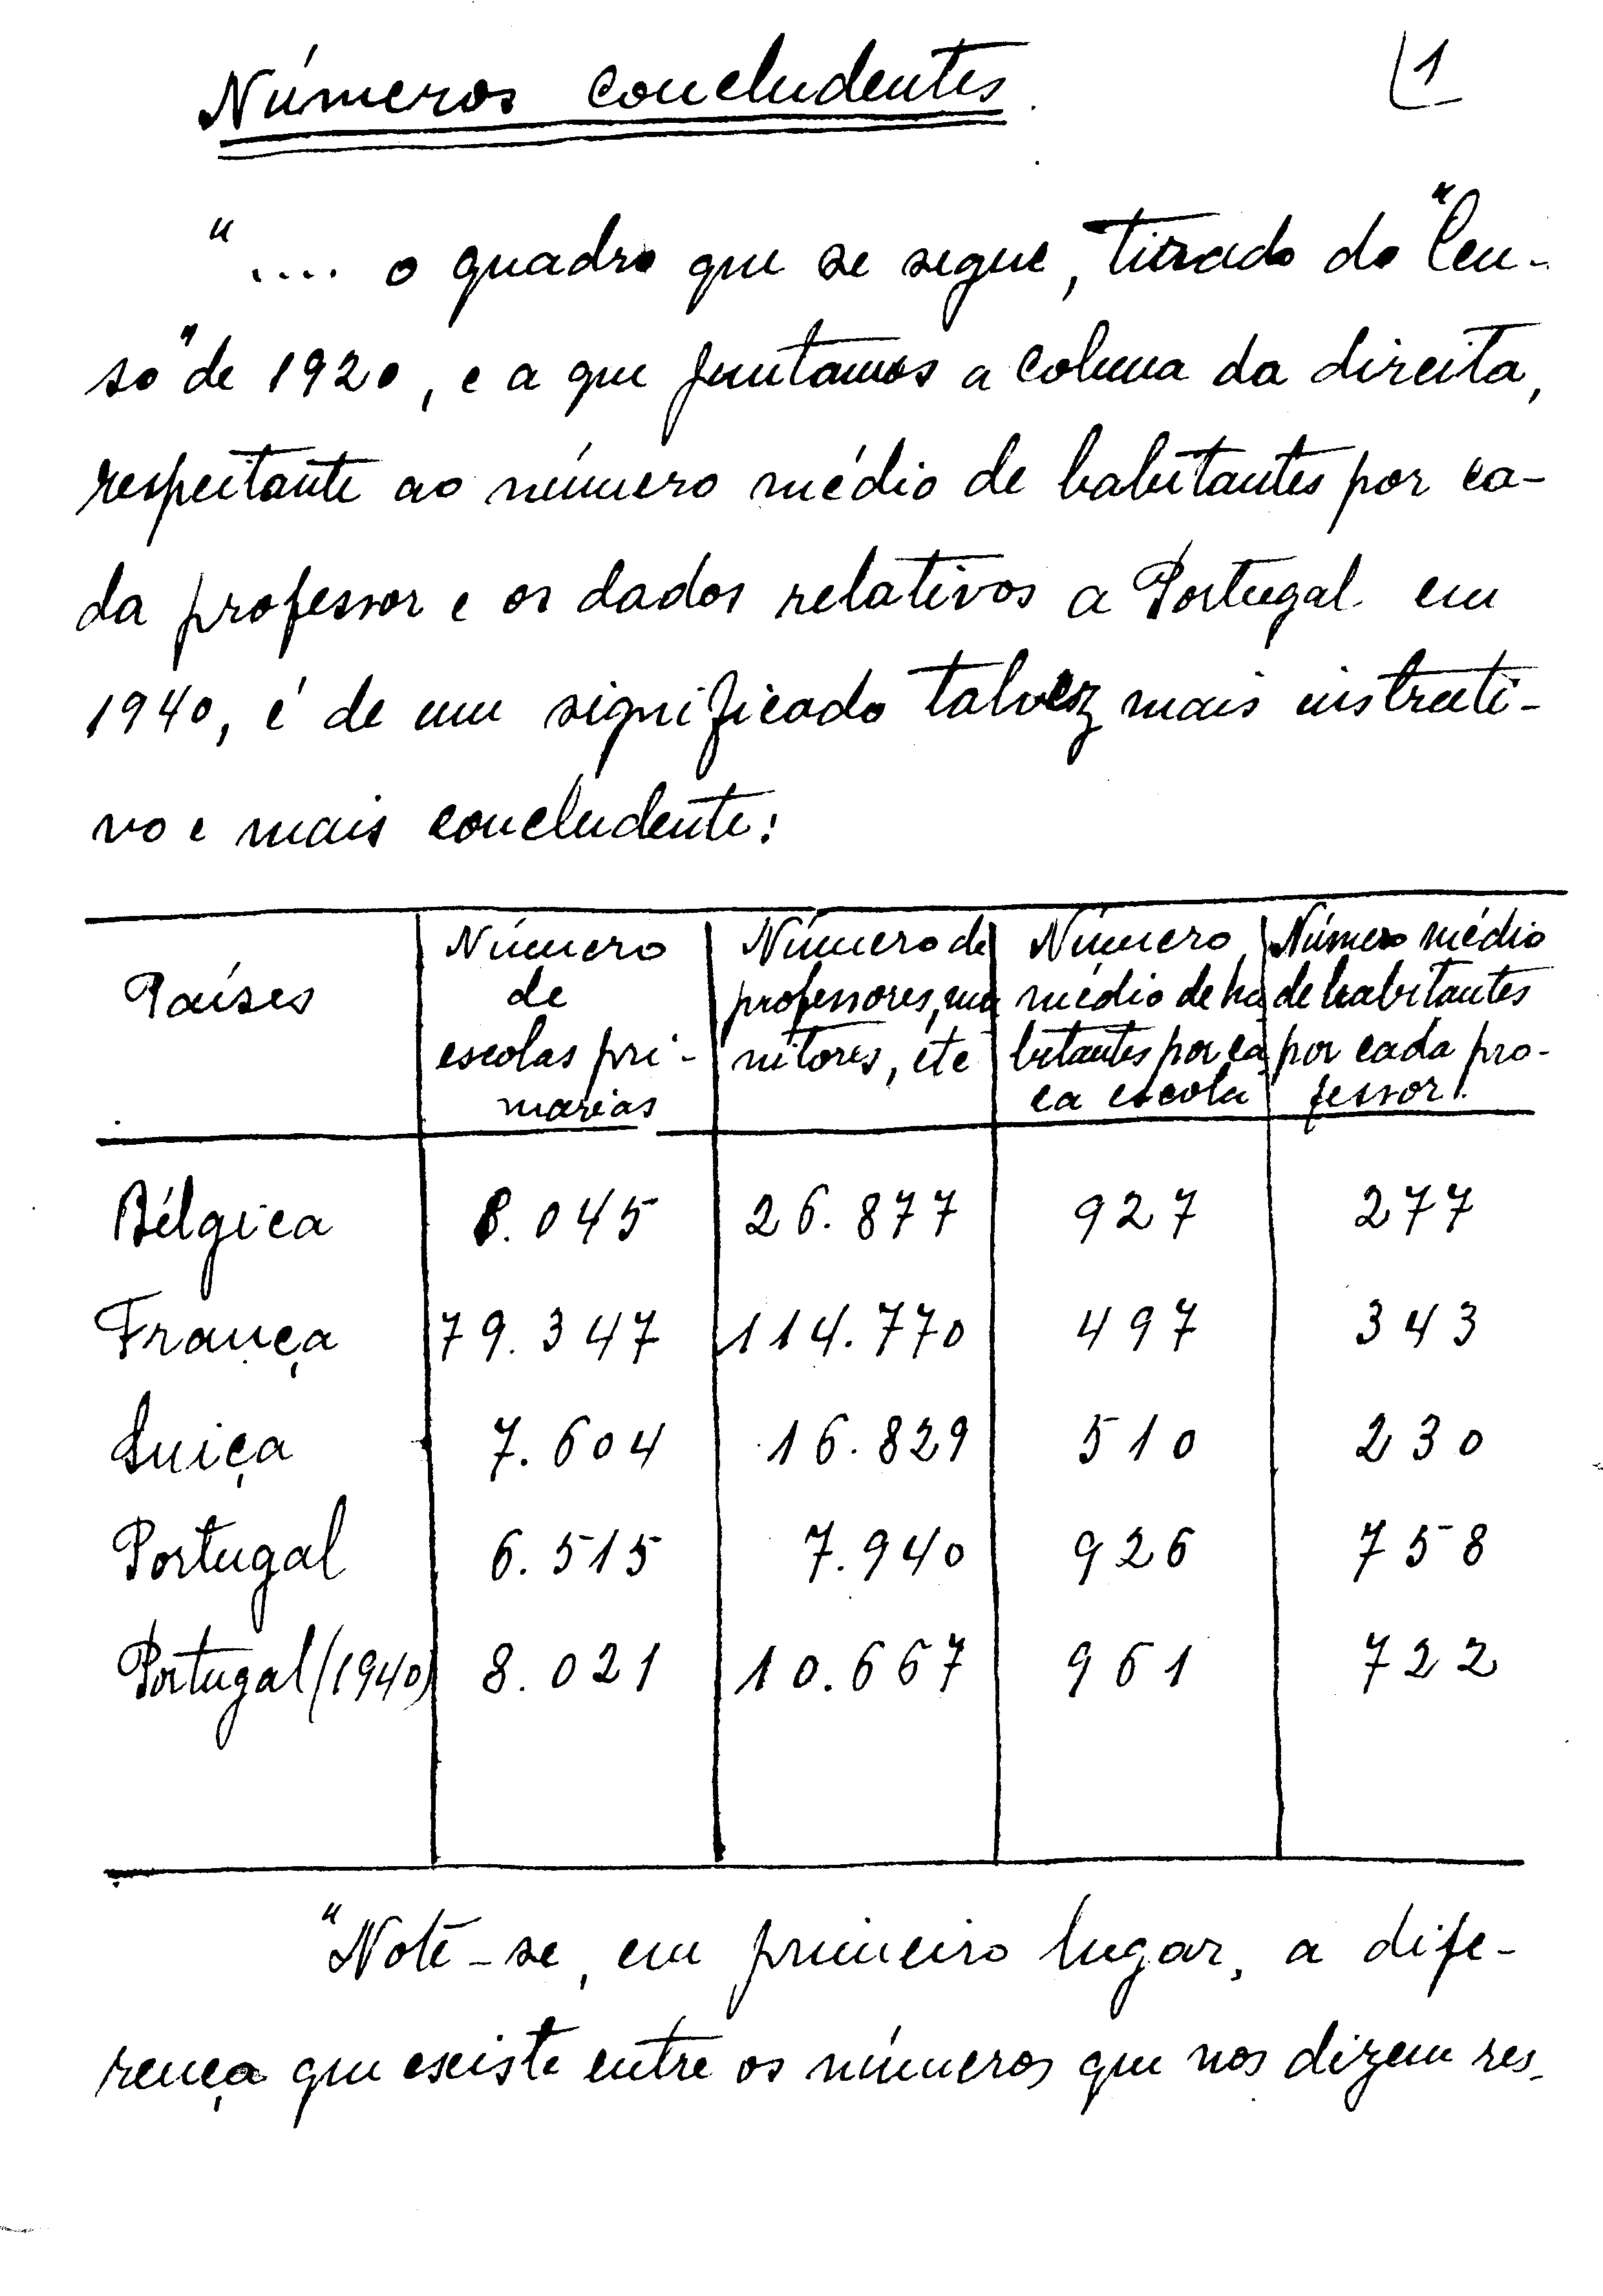 Números concludentes
1
".... o quadro que se segue, tirado do "Cen-
so" de 1920, e a que juntamos a coluna da direita,
respeitante ao número médio de habitantes por ca-
da professor e os dados relativos a Portugal em
1940, é de um significado talvez mais instruti-
vo e mais concludente:
Países | Número de escolas pri-marias | Número de professores, mo nitores, etc | Número médio de ha bitantes por ca ca escola | Número médio de habitantes por cada pro-fessor
Bélgica 8.045 26.877 927 277
França 79.347 114.770 497 343
Suiça 7.604 16.829 510 230
Portugal 6.515 7.940 926 758
Portugal (1940) 8.021 10.667 961 722
"Note-se, em primeiro lugar, a dife-
rença que existe entre os números que nos dizem res-